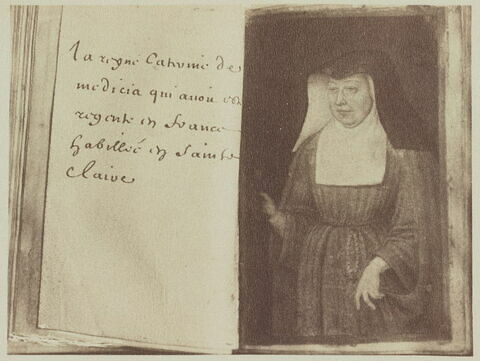 la reyne Caterine de
medicis qui avoit esté
regente en france
habillée en Sainte
Claire